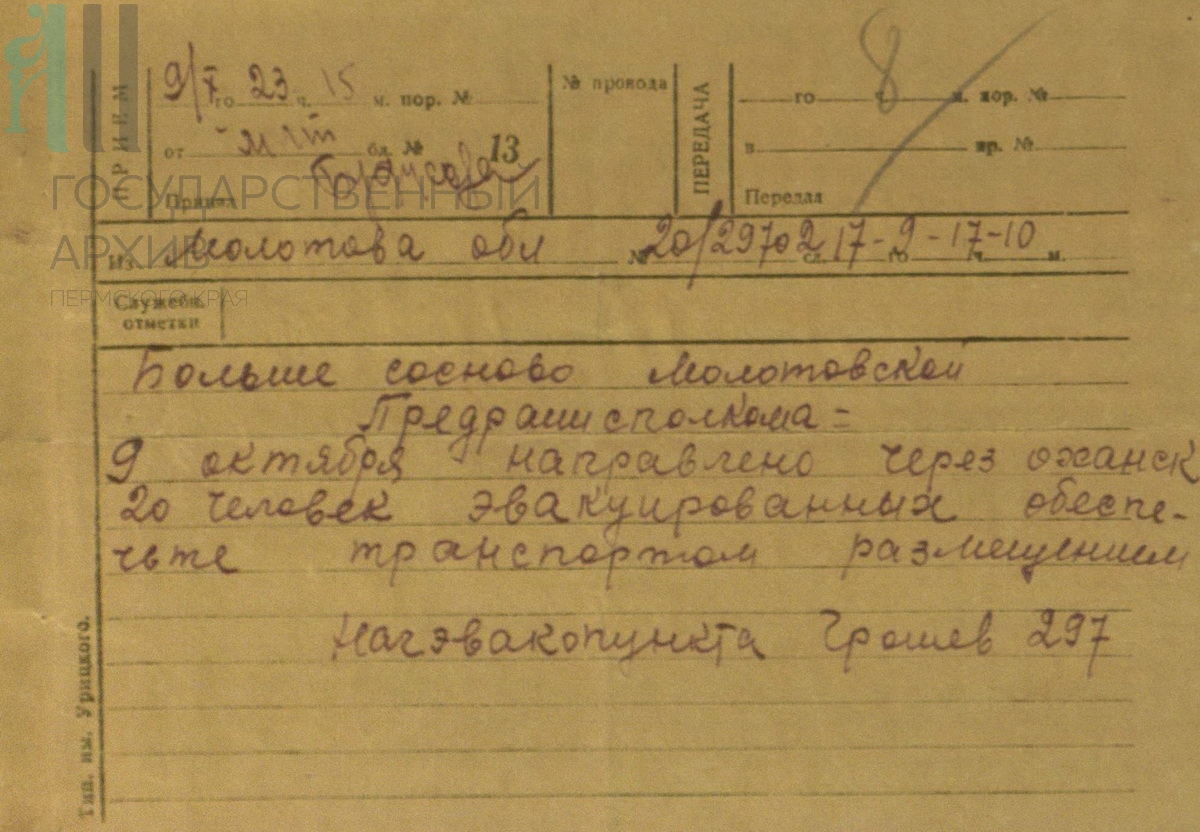 ГОСУДАРСТВЕННЫЙ
АРХИВ
ПЕРМСКОГО КРАЯ
ПРИЕМ
9/X го 23 ч. 15 м. пор. №
от бл. № 13
Принял
№ провода
ПЕРЕДАЧА
8
го ч. м. пор. №
в пр. №
Передал
Из Молотова обл № 20/29702 сл. 17-9-17-10 го ч. м.
Служебн.
отметки
Больше сосново Молотовской
Предраиисполкома =
9 октября направлено через оханск
20 человек эвакуированных обеспе-
чьте транспортом размещением
Начэвакопункта Грошев 297
Тип. им. Урицкого.